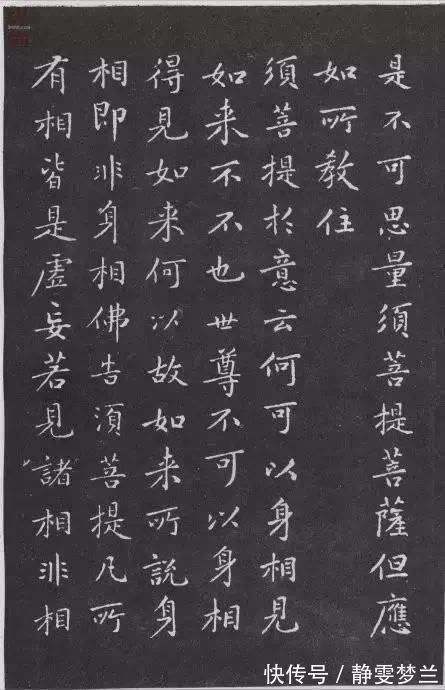 是不可思量須菩提菩薩但應
如所教住
須菩提於意云何可以身相見
如来不不也世尊不可以身相
得見如来何以故如来所說身
相即非身相佛告須菩提凡所
有相皆是虛妄若見諸相非相
快传号 / 静雯梦兰